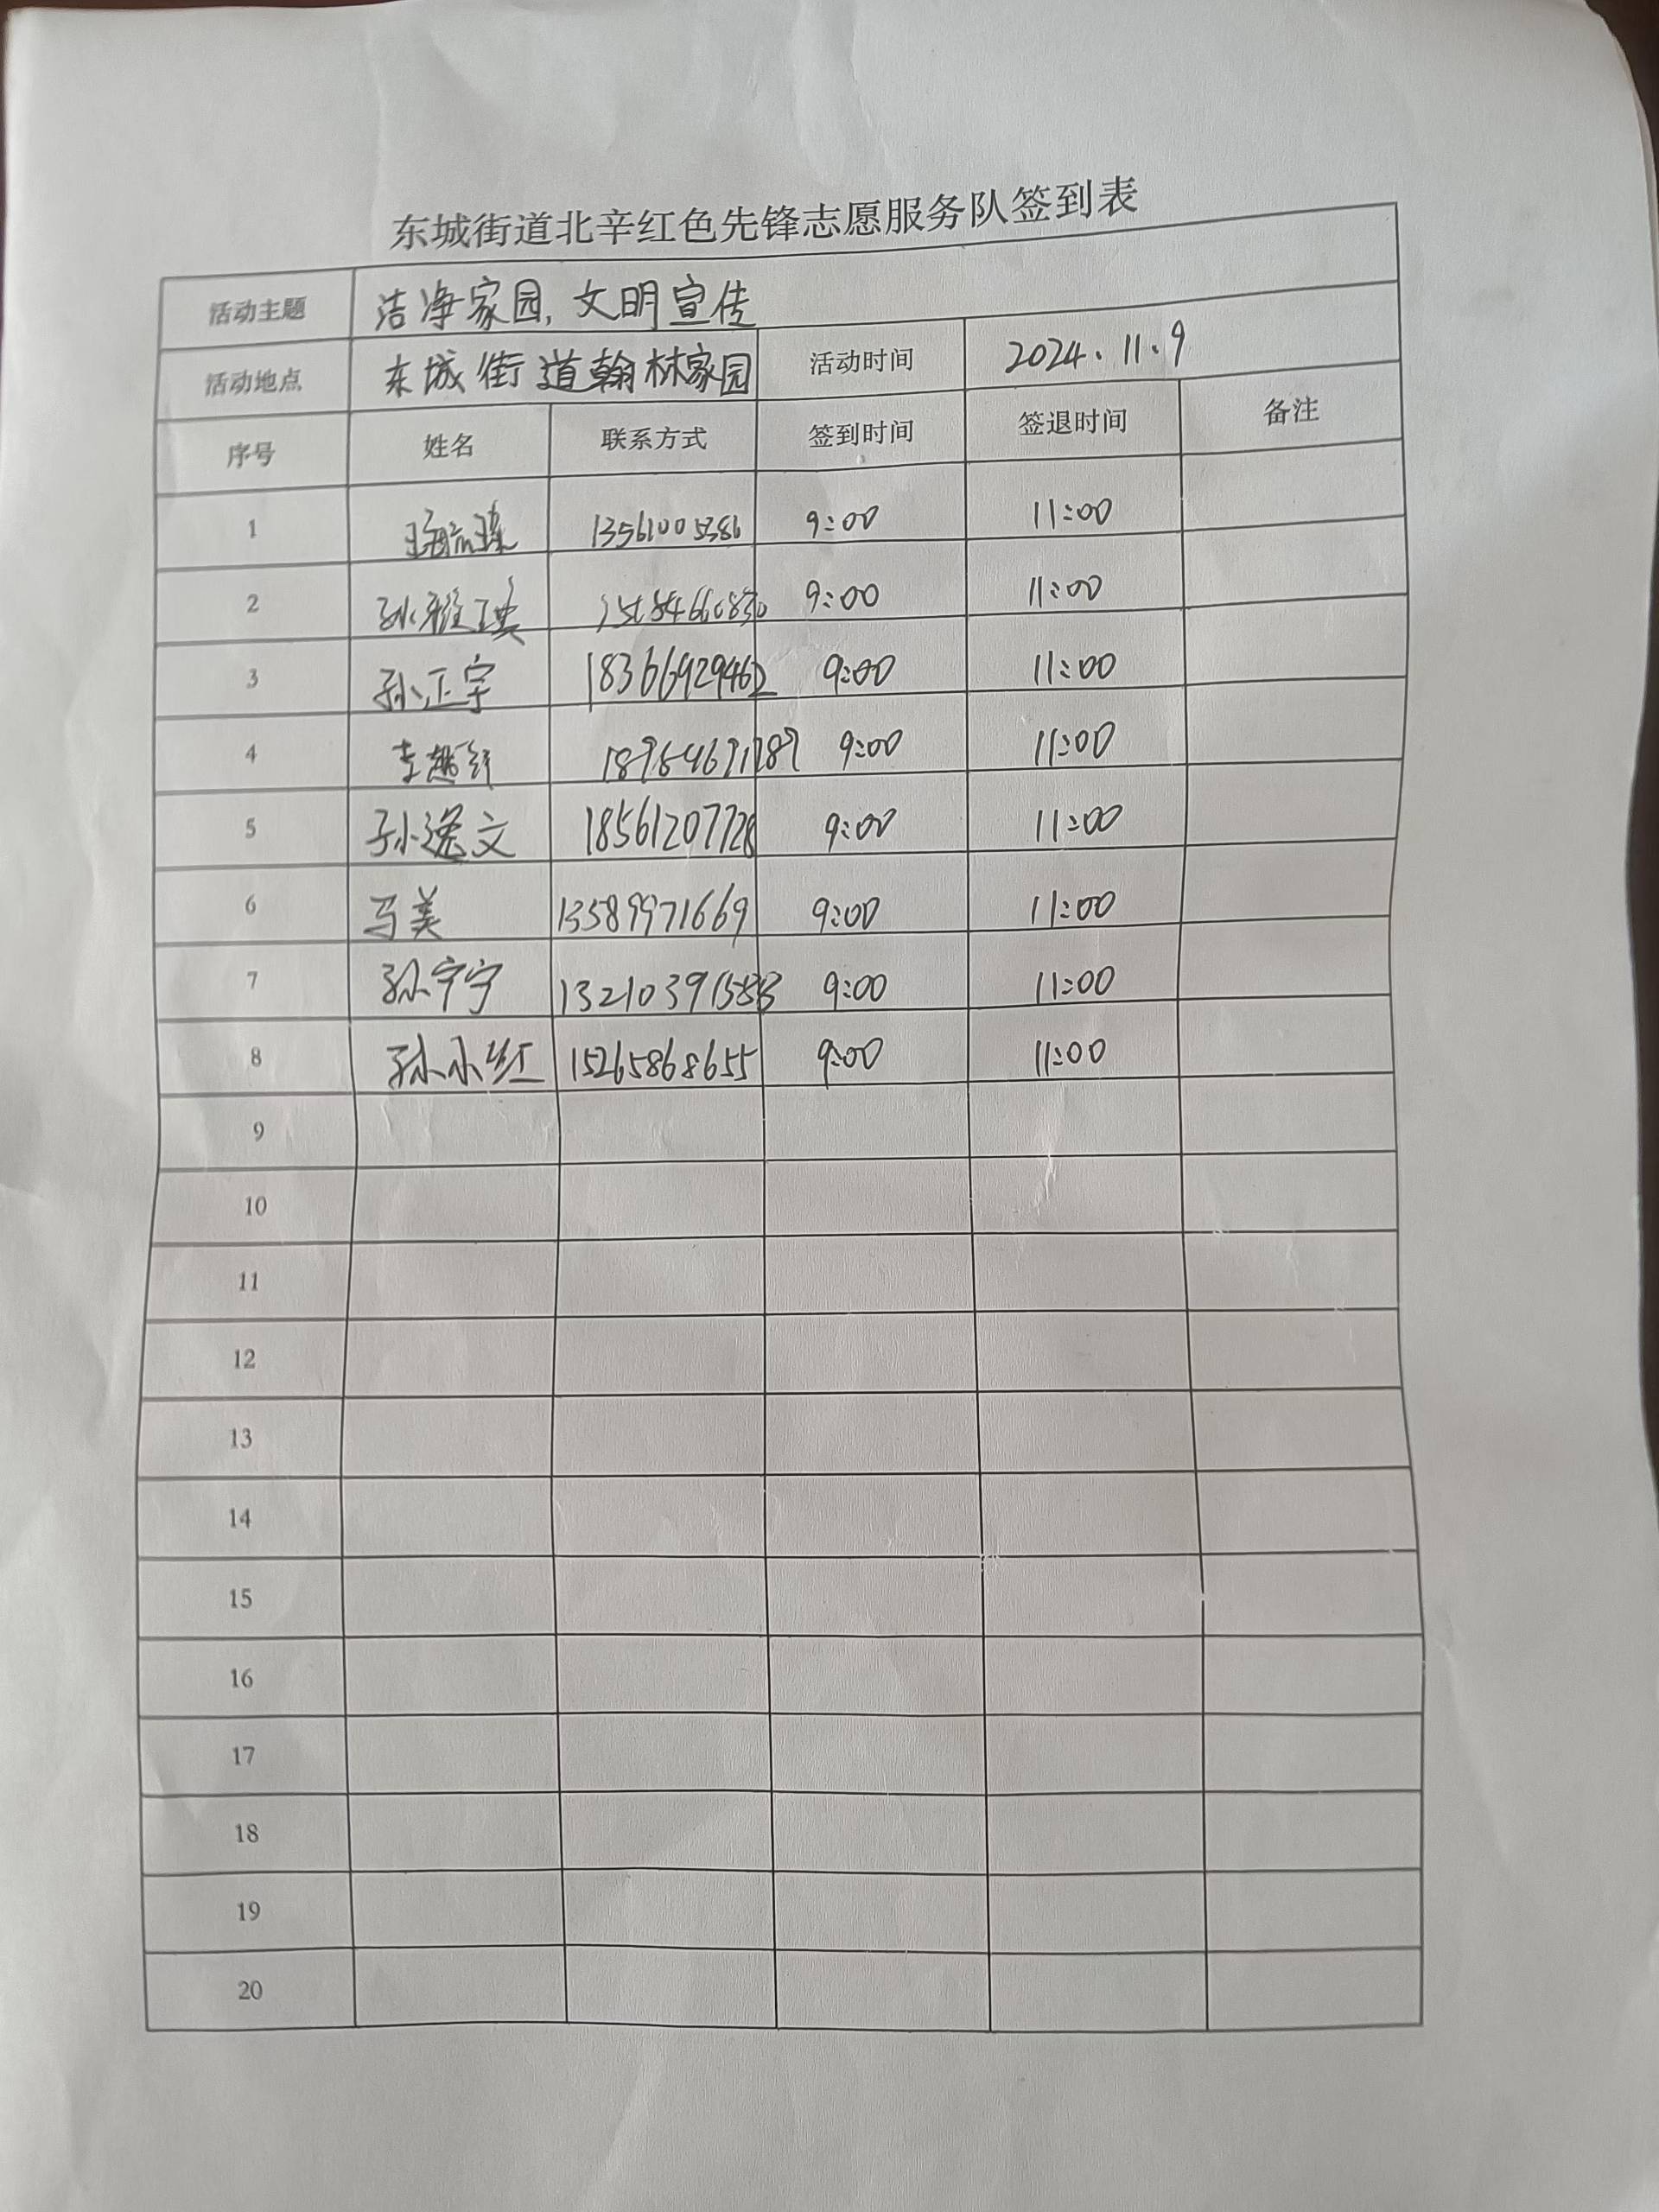 东城街道北辛红色先锋志愿服务队签到表
活动主题 洁净家园,文明宣传
活动地点 东城街道翰林家园 活动时间 2024.11.9
序号 姓名 联系方式 签到时间 签退时间 备注
1 13561005386 9:00 11:00
2 9:00 11:00
3 孙正宇 18366929462 9:00 11:00
4 9:00 11:00
5 孙逸文 18561207728 9:00 11:00
6 马美 13589971669 9:00 11:00
7 孙宁宁 9:00 11:00
8 孙小红 15265868655 9:00 11:00
9
10
11
12
13
14
15
16
17
18
19
20